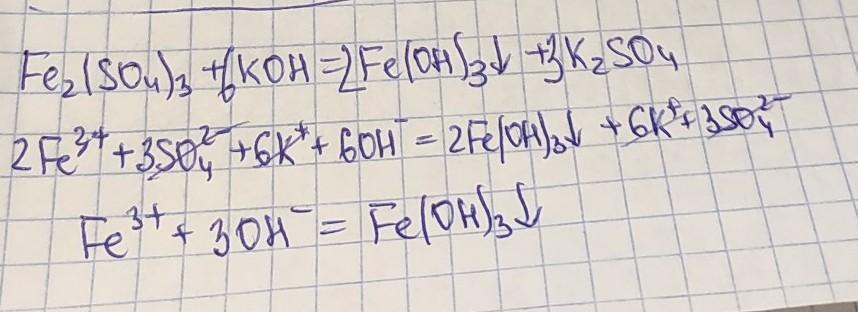 Fe₂(SO₄)₃ + 6KOH = 2Fe(OH)₃↓ + 3K₂SO₄
2Fe³⁺ + 3SO₄²⁻ + 6K⁺ + 6OH⁻ = 2Fe(OH)₃↓ + 6K⁺ + 3SO₄²⁻
Fe³⁺ + 3OH⁻ = Fe(OH)₃↓